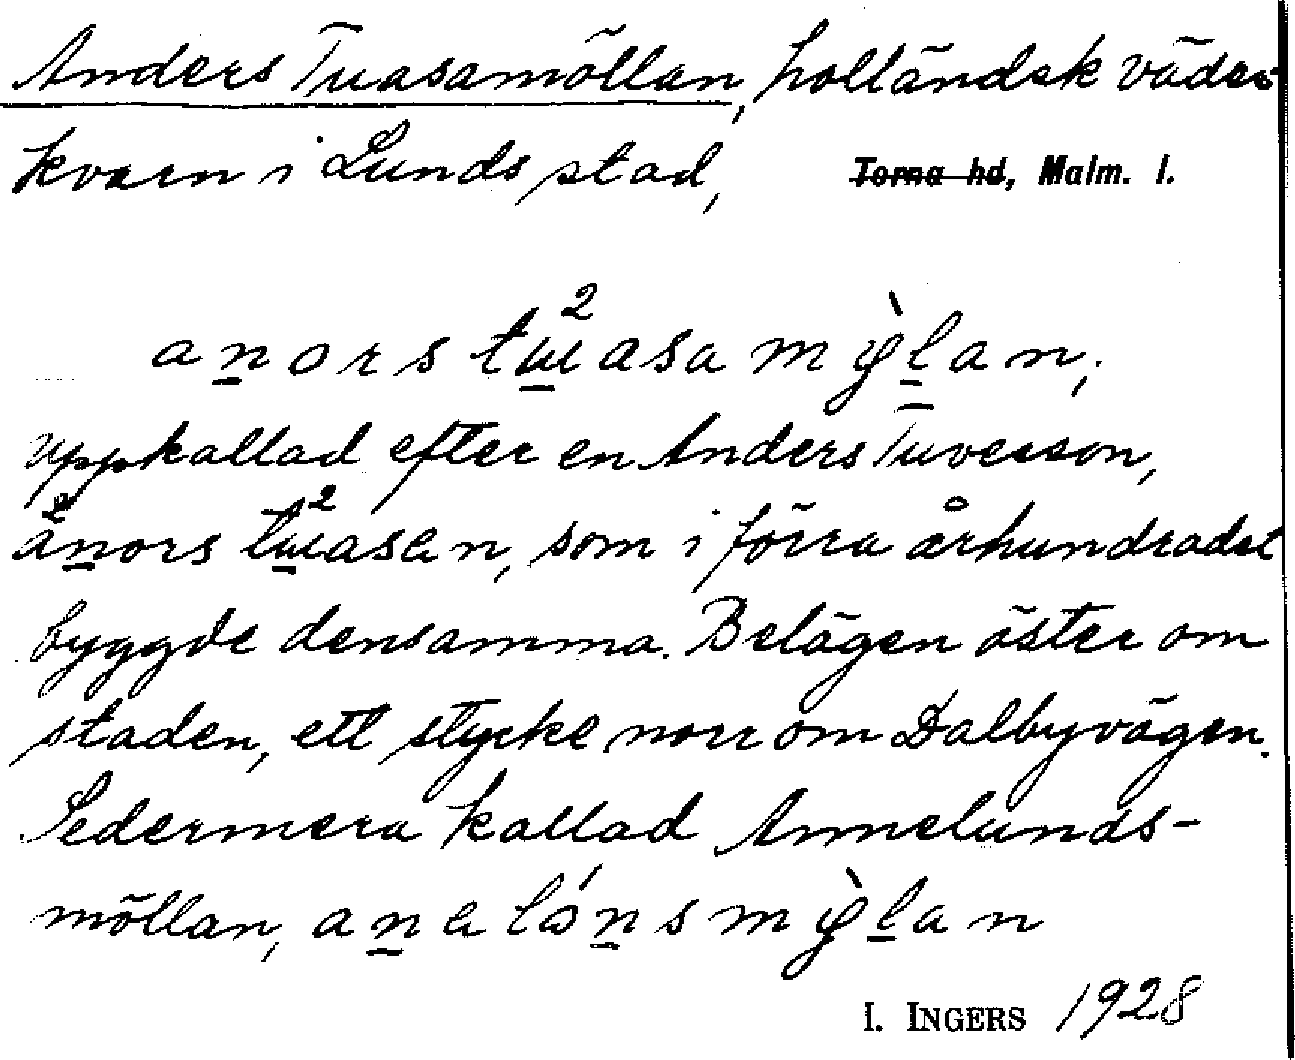 Anders Tuasamöllan, holländsk väder
kvarn i Lunds stad, Torna hd, Malm. l.
anors tɯ²asa mø̀lan,
uppkallad efter en Anders Tuverson,
ànors tɯ²asen, som i förra århundradet
byggde densamma. Belägen öster om
staden, ett stycke norr om Dalbyvägen.
Sedermera kallad Annelunds-
möllan, anelánsmø̀lan
I. INGERS 1928